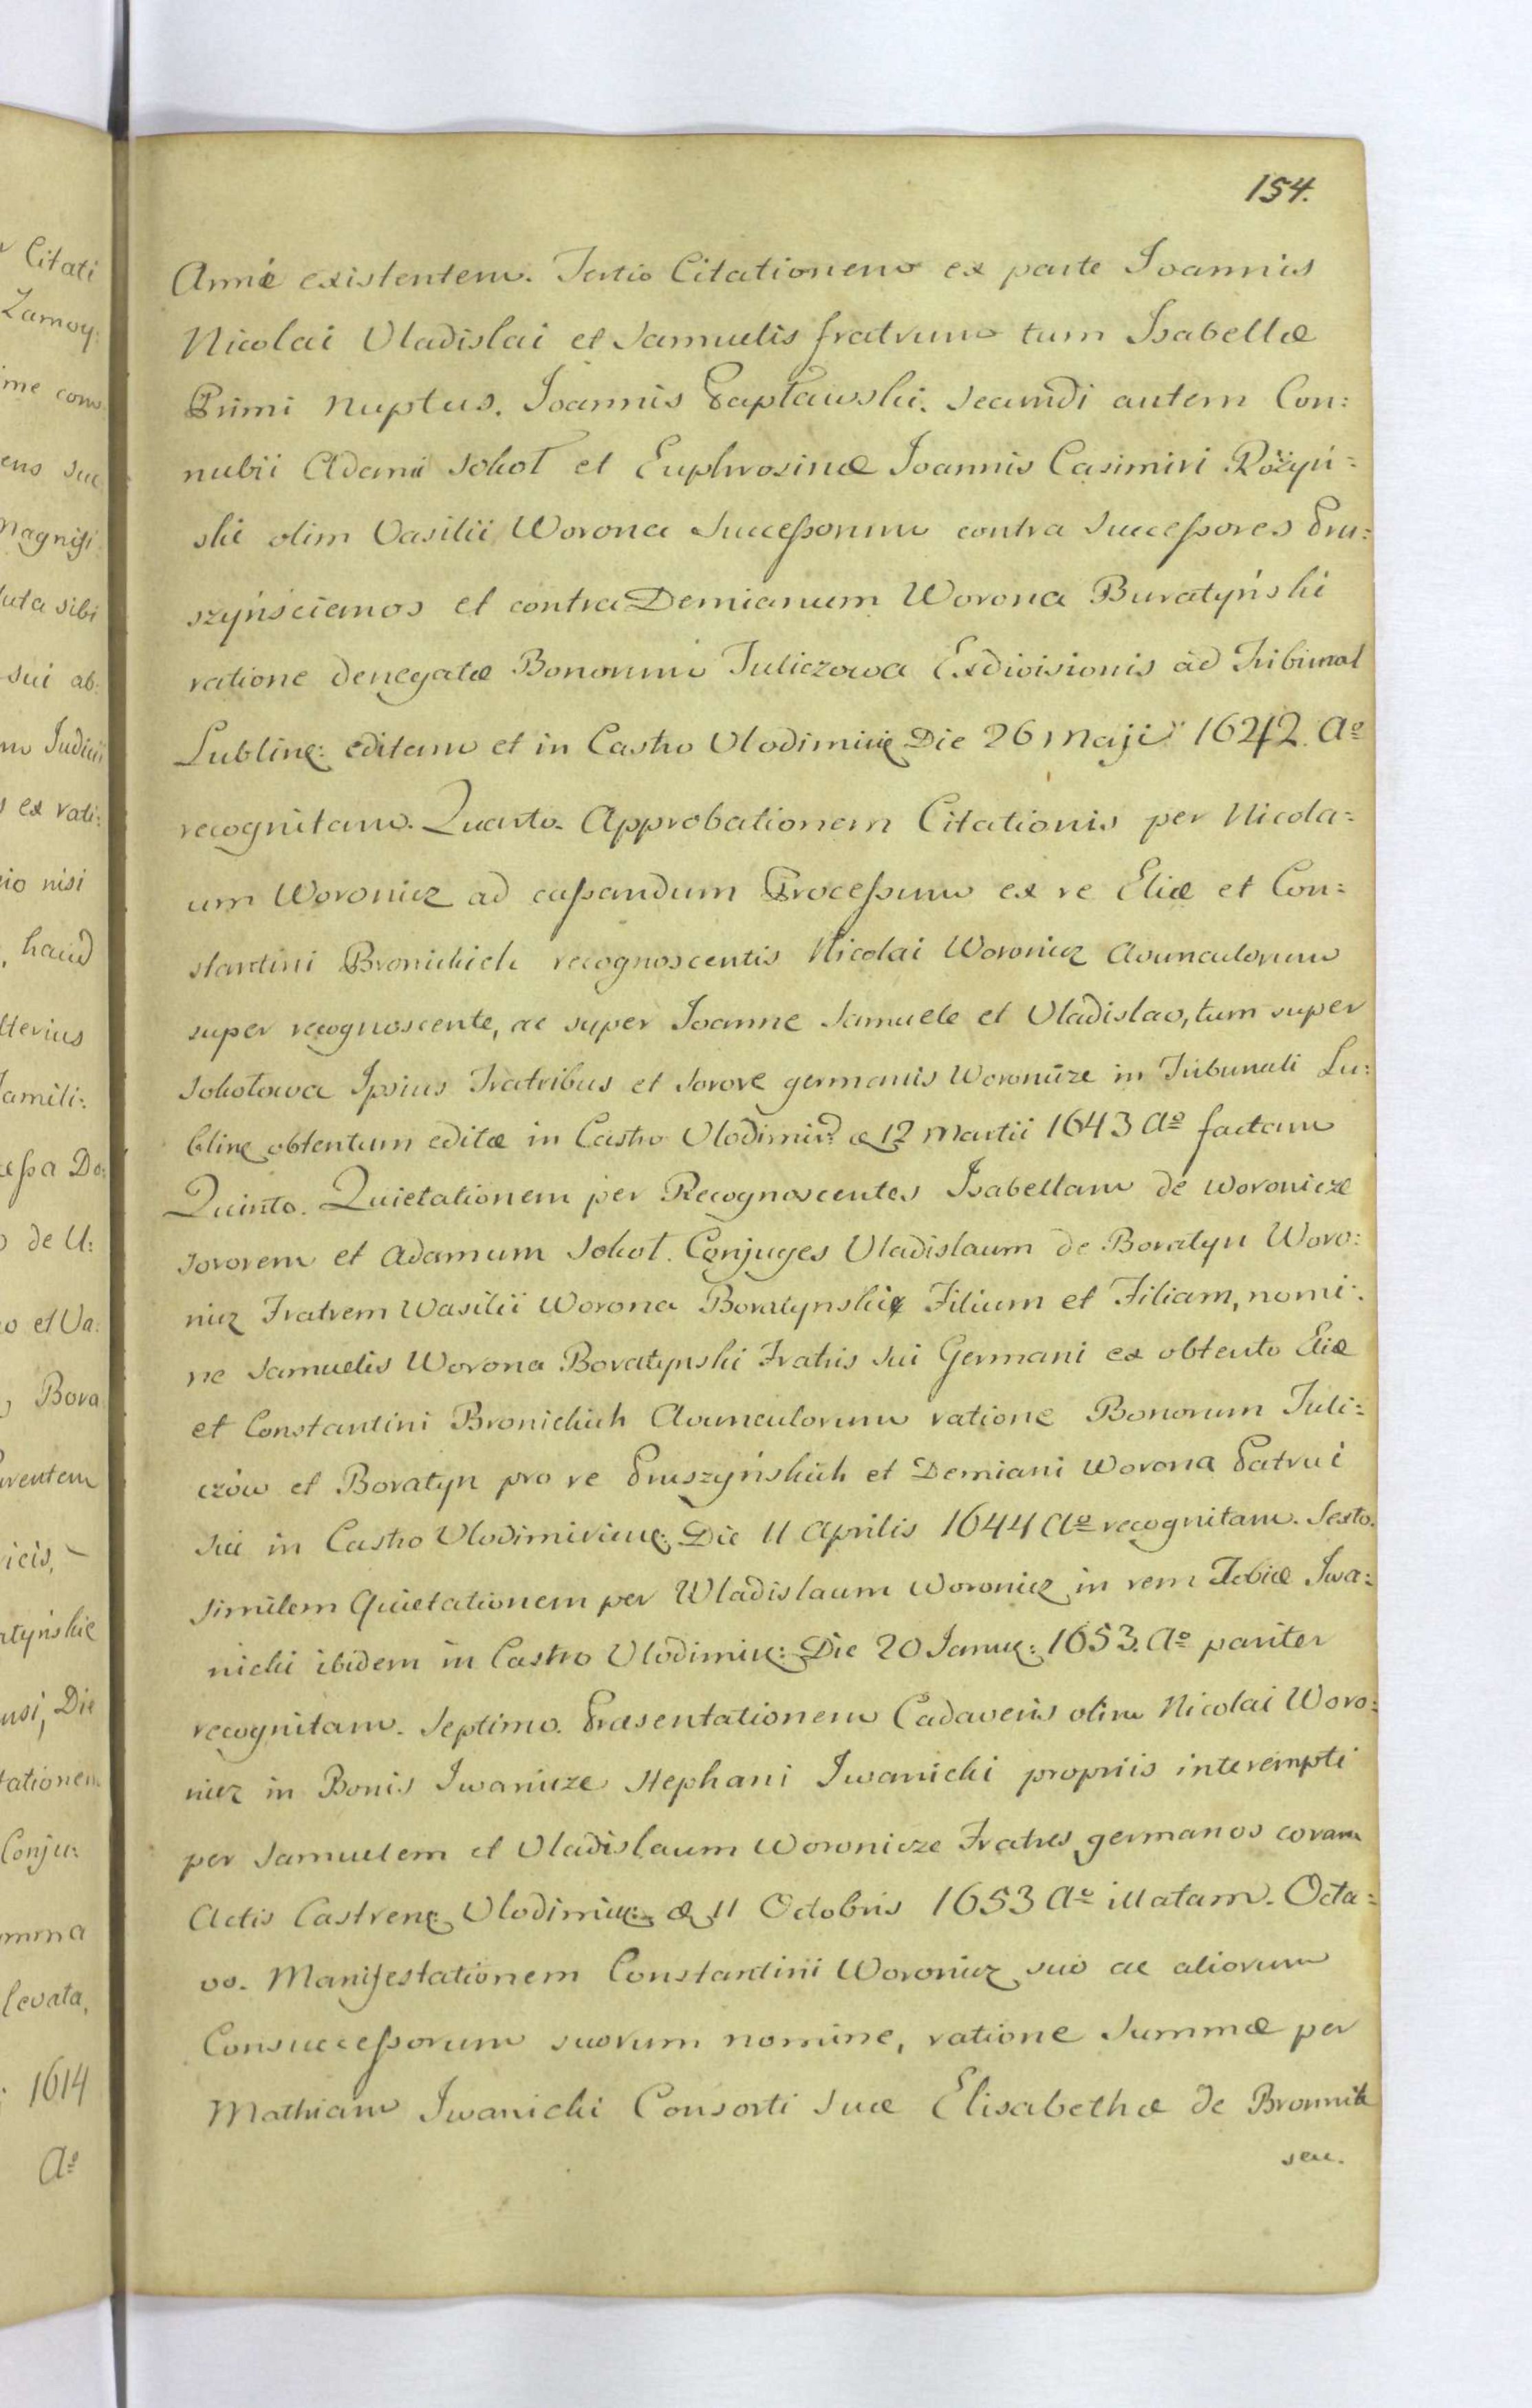 154.
Citati
Annæ existentem. Tertio Citationem ex parte Joannis
Zamoy:
Nicolai Vladislai et Samuelis fratrum tum Isabellæ
me com
Primi nuptus. Joannis Paplawski. Secundi autem Con:
ens suc
nubii Adami Sokoł et Euphrosinæ Joannis Casimiri Różyń=
magnifi
ski olim Vasilii Worona Succeſsorum contra Succeſsores Pru:
luta sibi
szyńscianos et contra Demianum Worona Buratyński
sui ab:
ratione denegatæ Bonorum Juliczowa Exdivisionis ad Tribunal
m Judicii
Lubline: editam et in Castro Vlodimirie Die 26 Maji 1642. Aº
s ex rati:
recognitam. Quarto. Approbationem Citationis per Nicola=
io nisi
um Woronicz ad caſsandum Proceſsum ex re Eliæ et Con:
, haud
stantini Bronickich recognoscentis Nicolai Woronicz Avunculorum
lterius
super recognoscente, ac super Joanne Samuele et Vladislao, tum super
famili:
Sokołowa Ipsius Fratribus et Sorore germanis Woronicze in Tribunali Lu:
ceſsa Do:
bline obtentum editæ in Castro Vlodimir: æ 12 Martii 1643 Aº factam
o de U:
Quinto. Quietationem per Recognoscentes Isabellam de Woronicze
o et Va:
Sororem et Adamum Sokoł. Conjuges Vladislaum de Boratyn Woro:
, Bora
nicz Fratrem Wasilii Worona Boratynskie Filium et Filiam, nomi:
ne Samuelis Worona Boratynski Fratris Sui Germani ex obtento Eliæ
rentem
et Constantini Bronickich Avunculorum ratione Bonorum Juli:
czów et Boratyn pro re Pruszyńskich et Demiani Worona Patrui
icis,
Sui in Castro Vlodimiriene: Die 11 Aprilis 1644 Aº recognitam. Sexto.
atyńskie
Similem Quietationem per Wladislaum Woronicz in rem Febiæ Iwa:
nicki ibidem in Castro Vlodimir: Die 20 Janua: 1653. Aº pariter
nsi, Die
recognitam. Septimo. Præsentationem Cadaveris olim Nicolai Woro:
tationem
nicz in Bonis Iwanicze Stephani Iwanicki propriis interempti
Conju:
per Samuelem et Vladislaum Woronicze Fratres germanos coram
Actis Castrene Vlodimir: æ 11 Octobris 1653 Aº illatam. Octa:
mma
vo. Manifestationem Constantini Woronicz suo ac aliorum
levata,
Consucceſsorum suorum nomine, ratione Summæ per
1614
Mathiam Iwanicki Consorti Suæ Elisabethæ de Bronnick
Aº
seu.